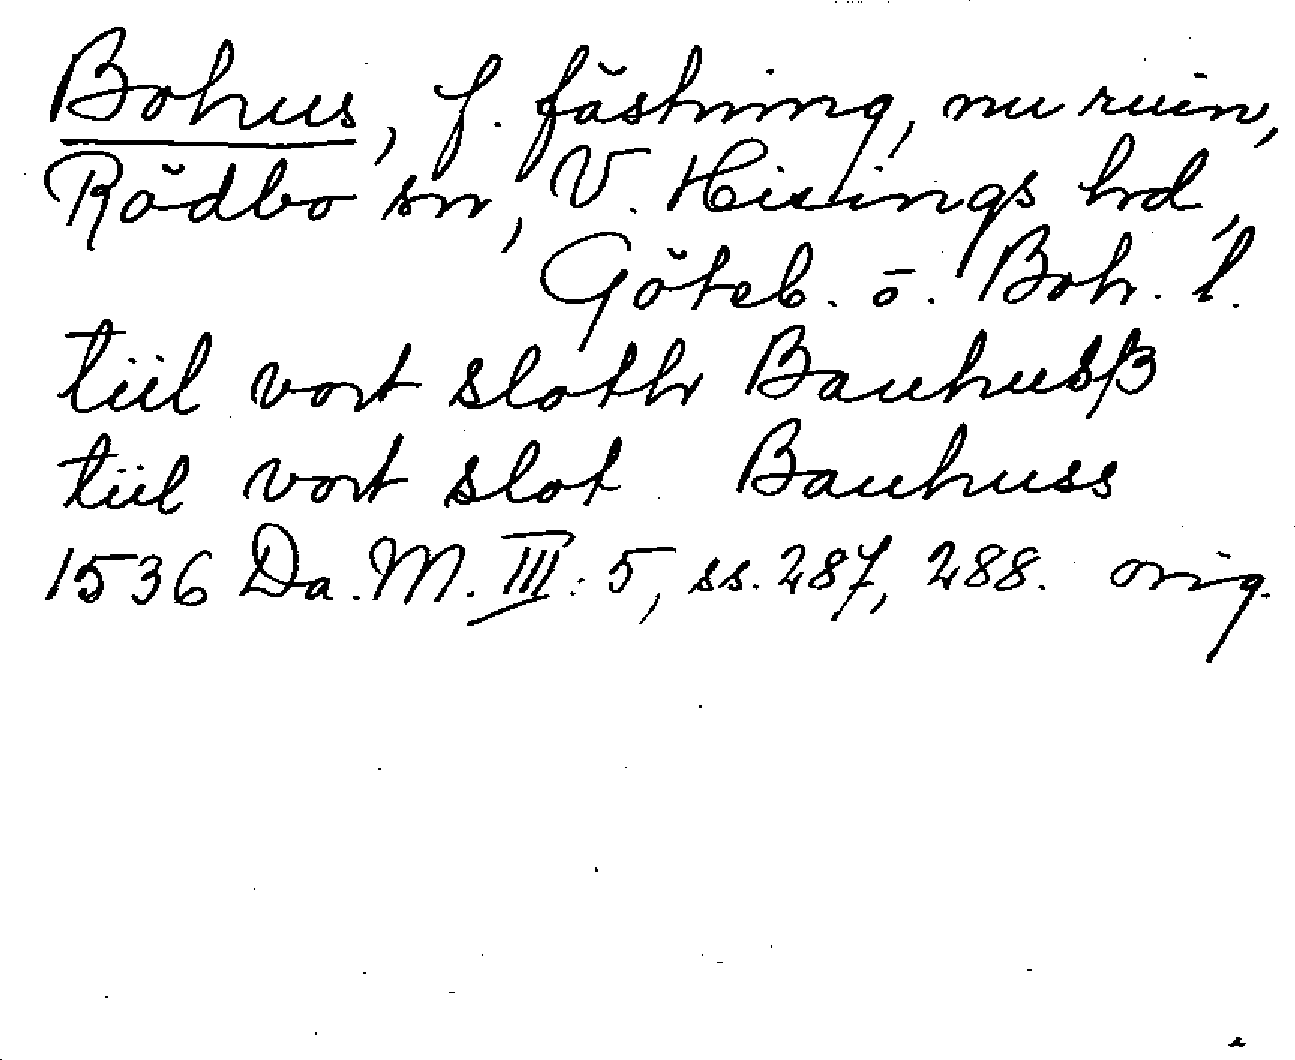 Bohus, f. fästning, nu ruin,
Rödbo sn, V. Hisings hd,
Göteb. o. Boh. l.
tiil vort sloth Bauhusß
tiil vort slot Bauhuss
1536 Da. M. III: 5, ss. 287, 288. orig.